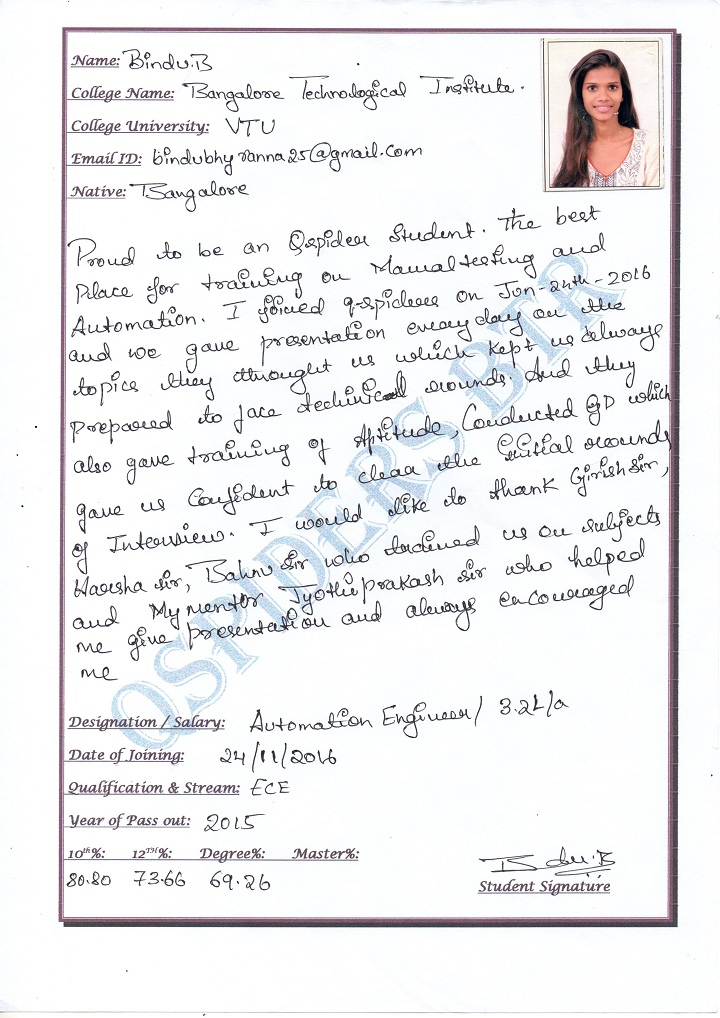 Name: Bindu.B
College Name: Bangalore Technological Institute.
College University: VTU
Email ID: bindubhyranna25@gmail.com
Native: Bangalore
Proud to be an Qspider Student. The best
Place for training on Manual testing and
Automation. I joined q-spiders on Jun-24th-2016
and we gave presentation everyday on the
topics they throught us which kept us always
prepared to face technical rounds. And they
also gave training of Aptitude, Conducted GD which
gave us Confident to clear the initial rounds
of Interview. I would like to thank Girish sir,
Haresha sir, Bahnu sir who trained us on subjects
and My mentor Jyothiprakash sir who helped
me give presentation and always encouraged
me
QSPIDERS BTR
Designation / Salary: Automation Engineer/ 3.2L/a
Date of Joining: 24/11/2016
Qualification & Stream: ECE
Year of Pass out: 2015
10th%: 12TH%: Degree%: Master%:
80.80 73.66 69.26
Student Signature